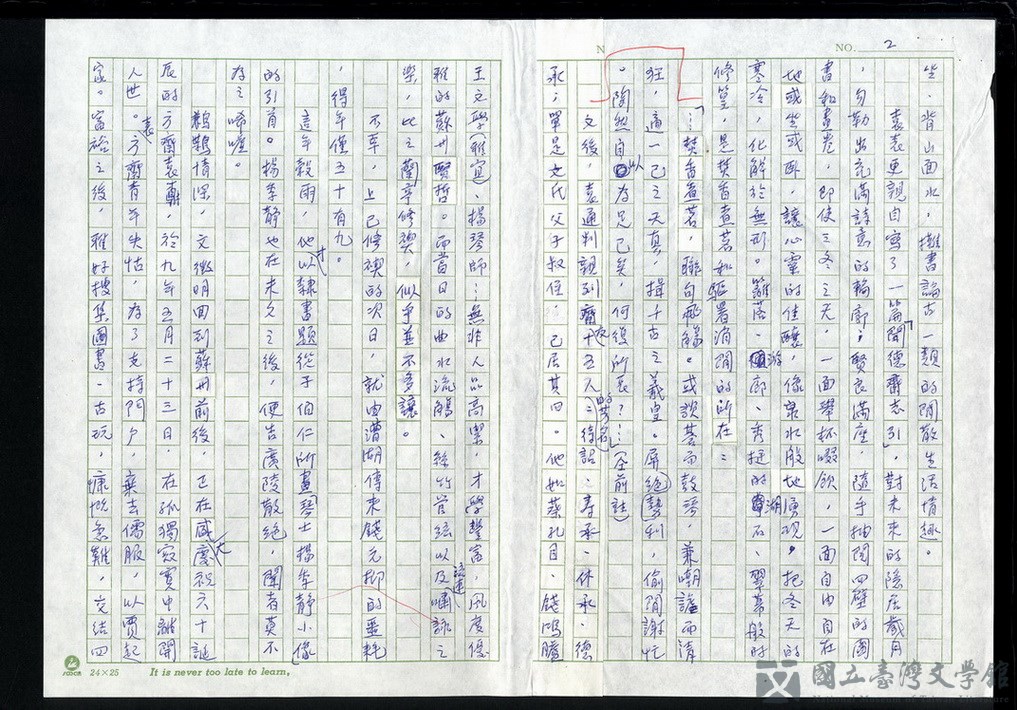 NO. 2
坐、背山面水，攤書論古一類的閒散生活情趣。
袁袠更親自寫了一篇「聞德齋志引」，對未來的隱居歲月
，勾勒出充滿詩意的輪廓：賢良滿座，隨手抽閱四壁的圖
書和畫卷，即使三冬之天，一面舉杯啜飲，一面自由自在
地或坐或臥，讓心靈的佳釀，像泉水般地湧現，把冬天的
寒冷，化解於無形。籬落、游廊、秀挺的湖石、翠幕般的
修篁，是焚香煮茗和驅署消閒的所在：
「…焚香煮茗，聯句飛觴。或談棊而鼓琴，兼嘲謔而清
狂，適一己之天真，揖千古之羲皇。屏絕勢利，偷閒謝忙
。陶然自以為足已矣，何復所艮？…（仝前註）
文後，袁通判親列齋友十五人的芳名；待詔、壽承、休承、德
承；單是文氏父子叔侄 已居其四。他如蔡孔目、錢鴻臚
王文學（雅宜）、楊琴師…無非人品高潔，才學豐富，風度優
雅的蘇州賢哲。而當日的曲水流觴、絲竹管絃以及嘯詠之
樂，比之蘭亭修禊，似乎並不多讓。
不幸，上已修禊的次日，就由漕湖傳來錢元抑的噩耗
，得年僅五十有九。
這年穀雨，他才以隸書題從子伯仁所畫琴士楊季靜小像
的引首。楊季靜也在未久之後，便告廣陵散絕，聞者莫不
為之唏噓。
鶼鶼情深，文徵明回到蘇州前後，正在感慶祝六十誕
辰的方齋袁鼒，於九年五月二十三日，在孤獨寂寞中離開
人世。袁方齋青年失怙，為了支持門戶，棄去儒服，以賈起
家。富裕之後，雅好搜集圖書、古玩，慷慨急難，交結四
24×25
It is never too late to learn.
國立臺灣文學館
National Museum of Taiwan Literature